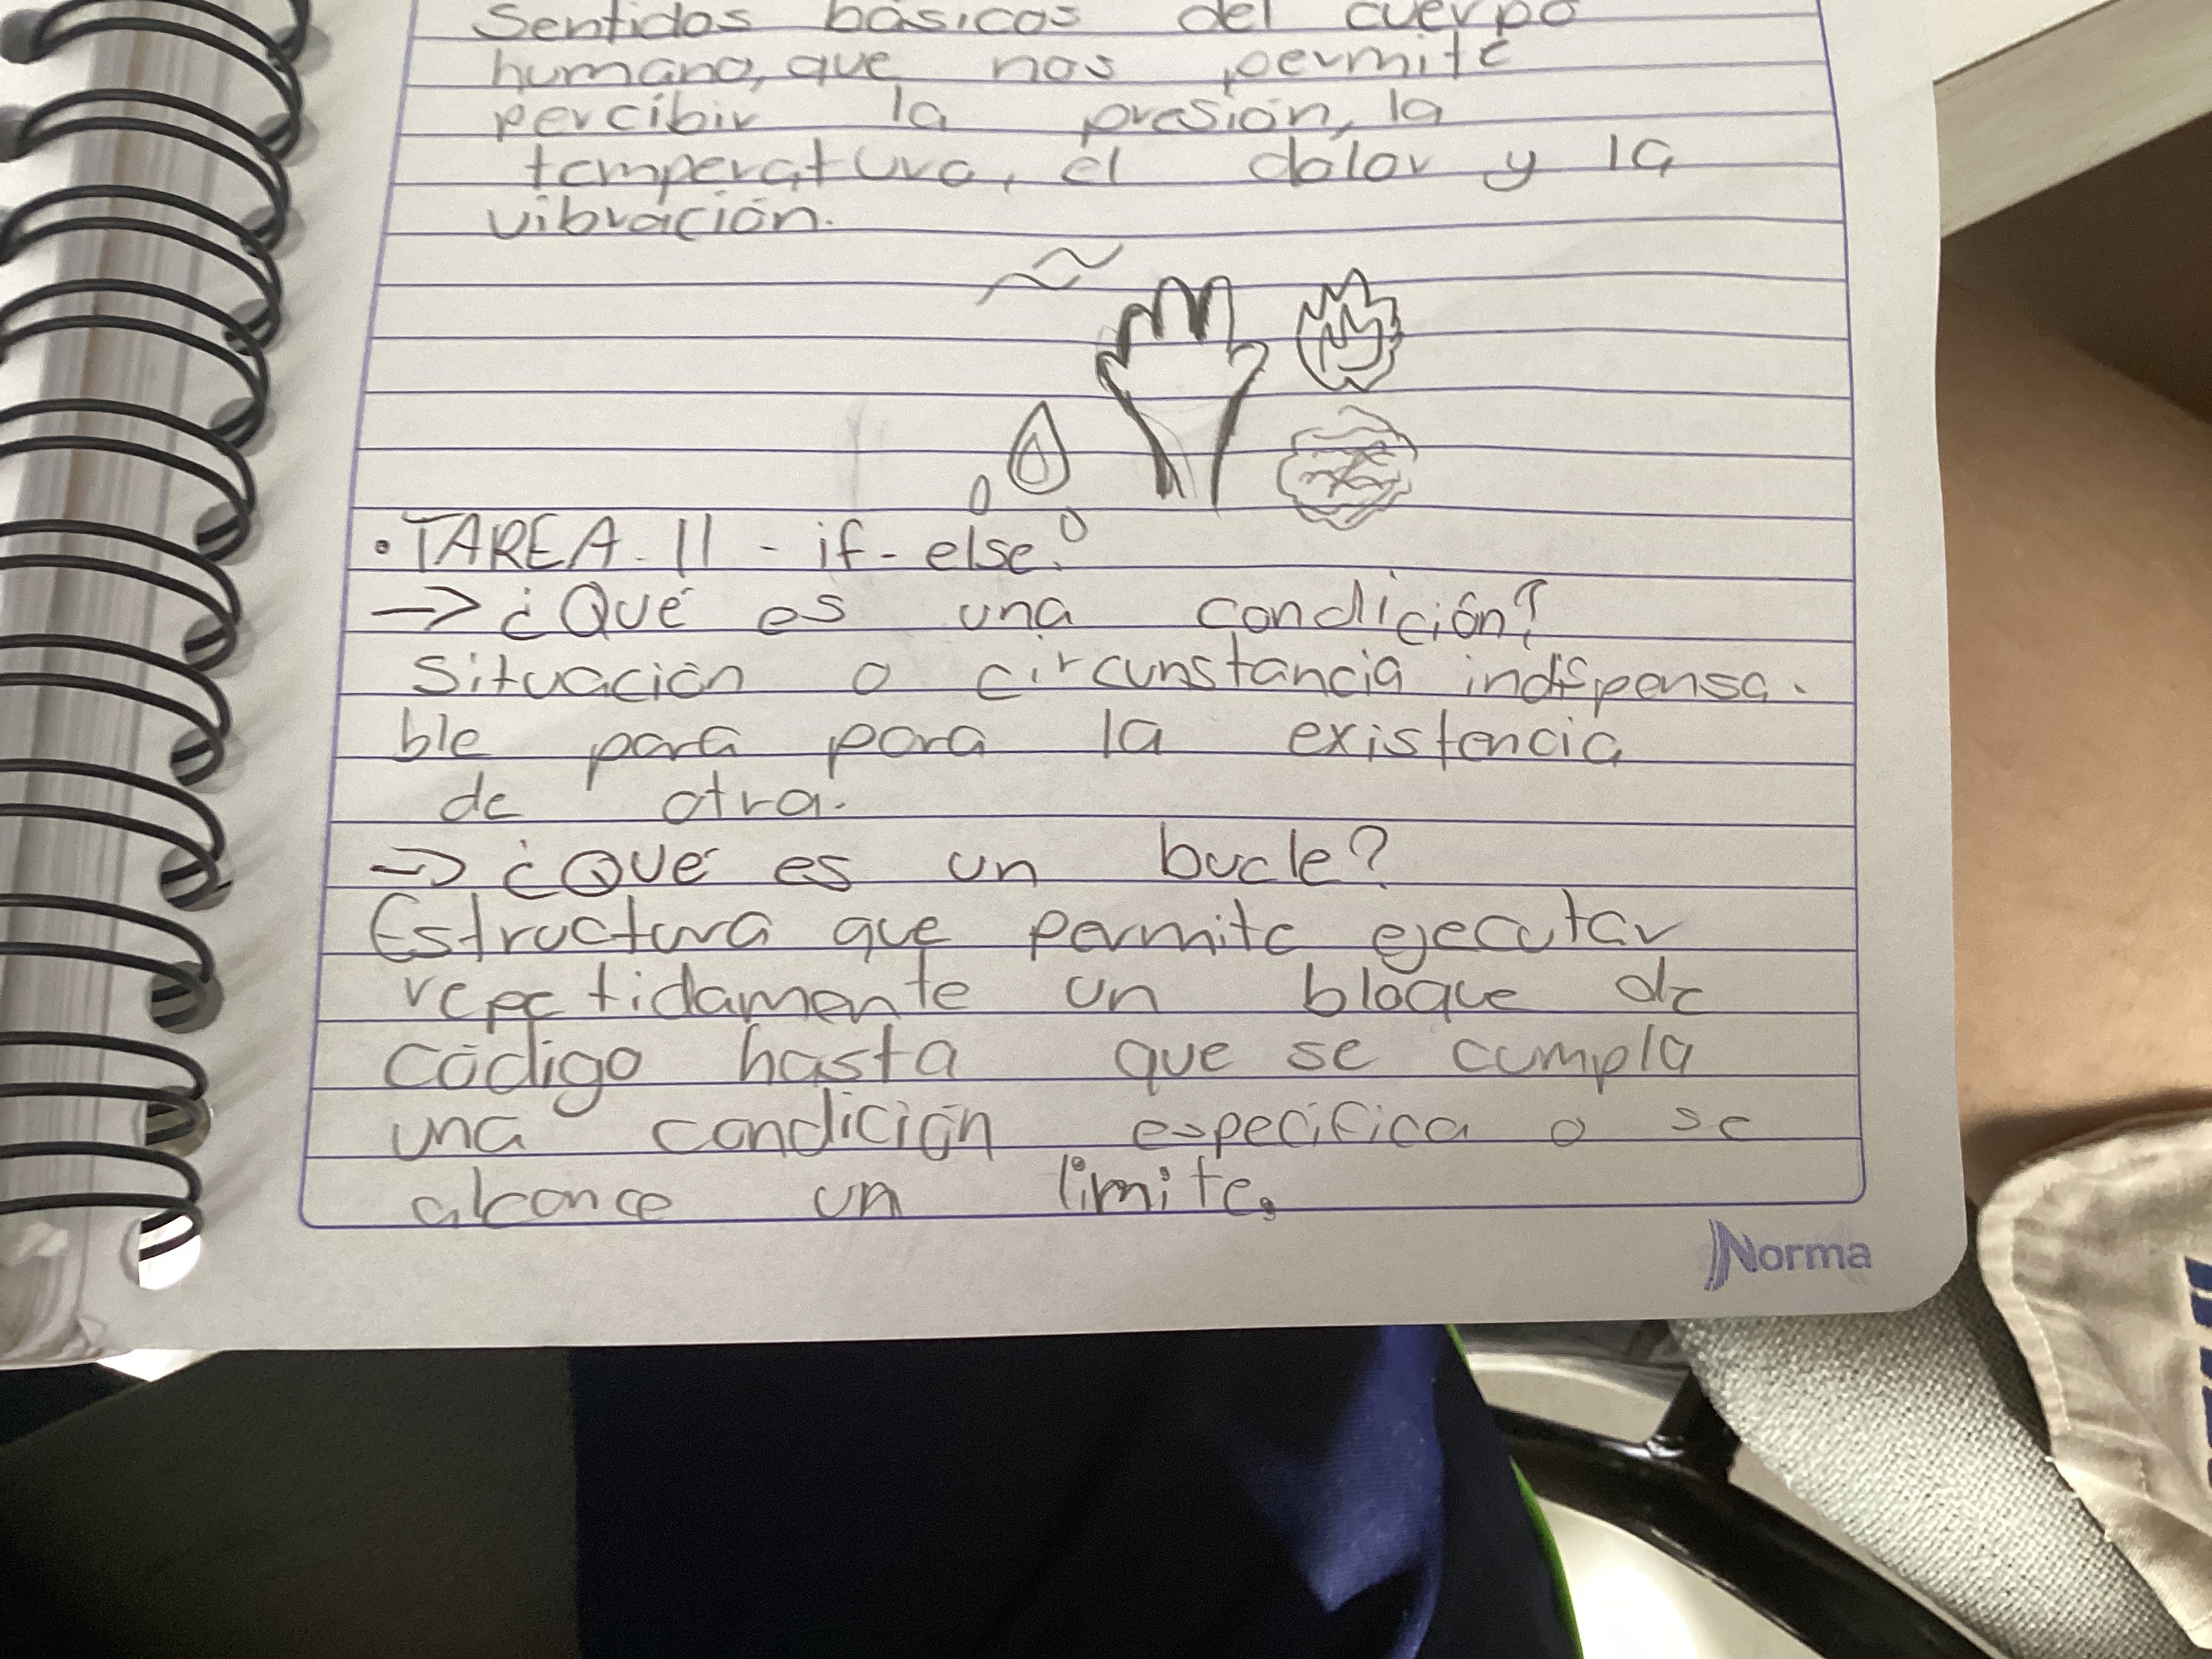 Sentidos básicos del cuerpo
humano, que nos permite
percibir la presión, la
temperatura, el dolor y la
vibración.
• TAREA - 11 - if - else.
-> ¿Qué es una condición?
Situación o circunstancia indispensa-
ble para para la existencia
de otra.
-> ¿Qué es un bucle?
Estructura que permite ejecutar
repetidamente un bloque de
código hasta que se cumpla
una condición específica o se
alcance un límite.
Norma